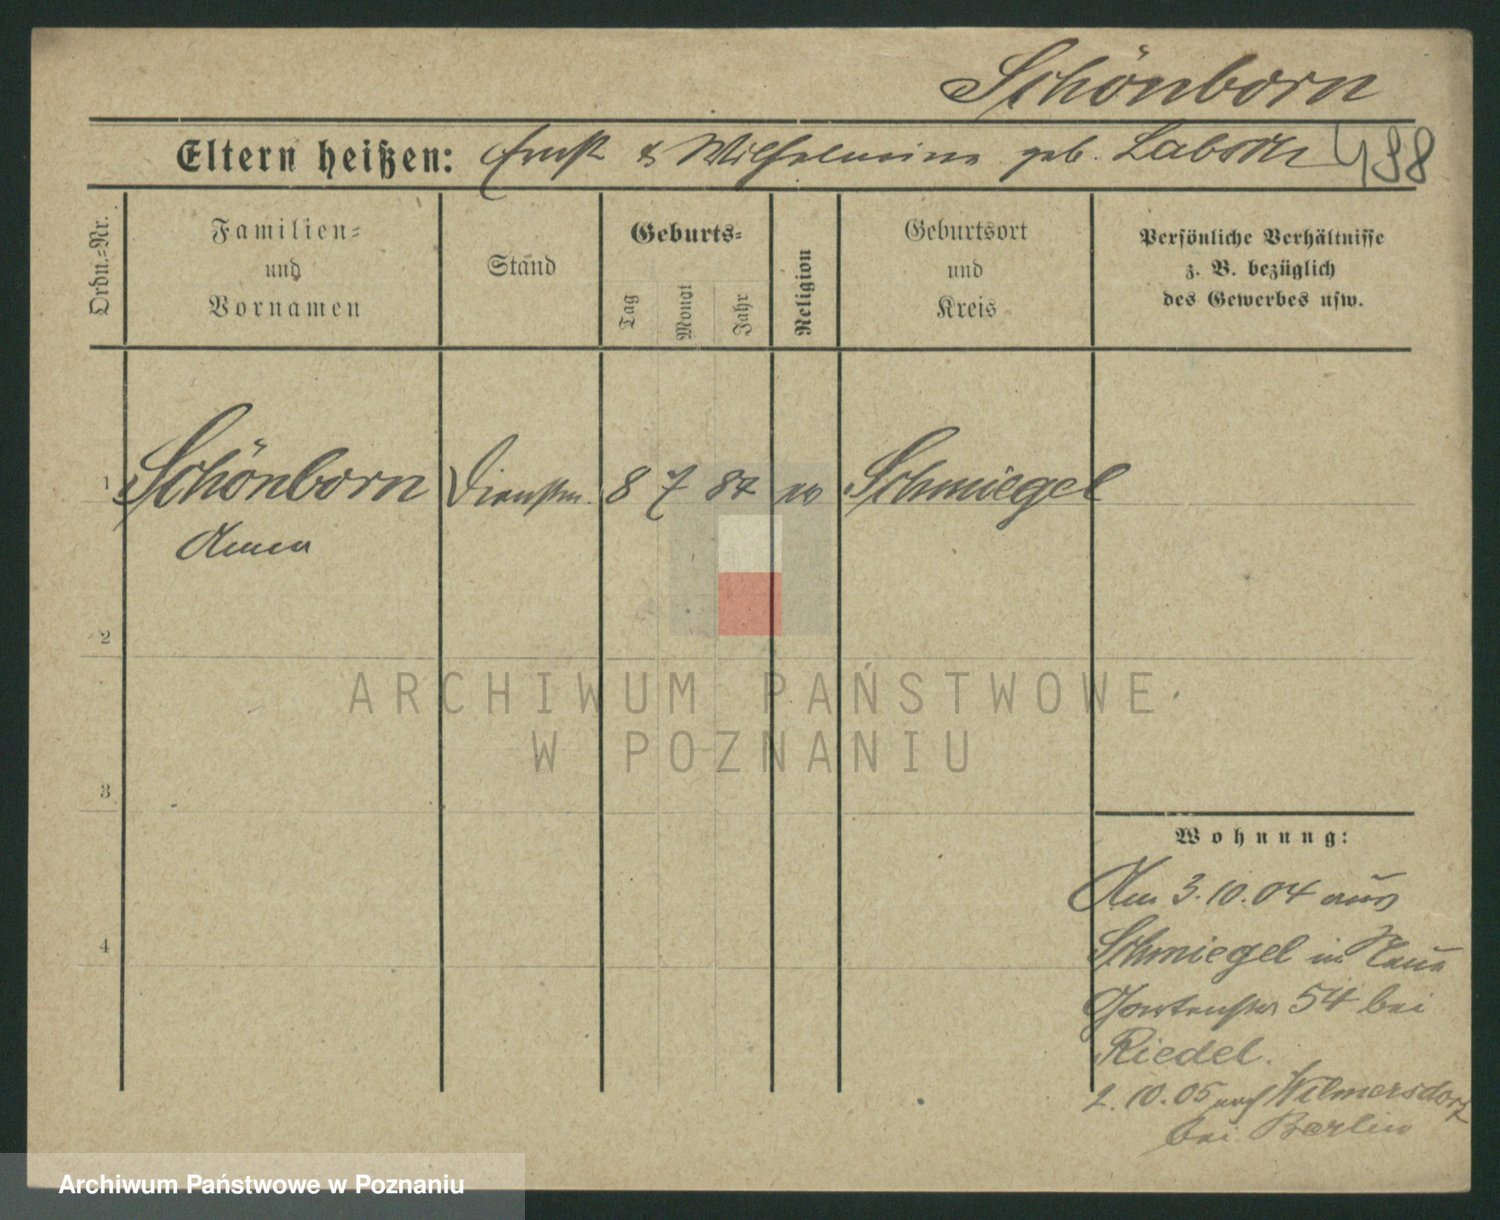 Schönborn
Eltern heißen: Ernst & Wilhelmine geb.
498
Ordn.=Nr.
Familien=
und
Vornamen
Stand
Geburts=
Tag
Monat
Jahr
Religion
Geburtsort
und
Kreis
Persönliche Verhältnisse
z. B. bezüglich
des Gewerbes usw.
1 Schönborn Dienstm. 8 7 84 ev Schmiegel
Anna
2
ARCHIWUM PAŃSTWOWE
W POZNANIU
3
Wohnung:
Am 3.10.04 aus
4
Schmiegel in Neue
Gartenstr 54 bei
Riedel.
2.10.05 nach Wilmersdorf
bei Berlin
Archiwum Państwowe w Poznaniu